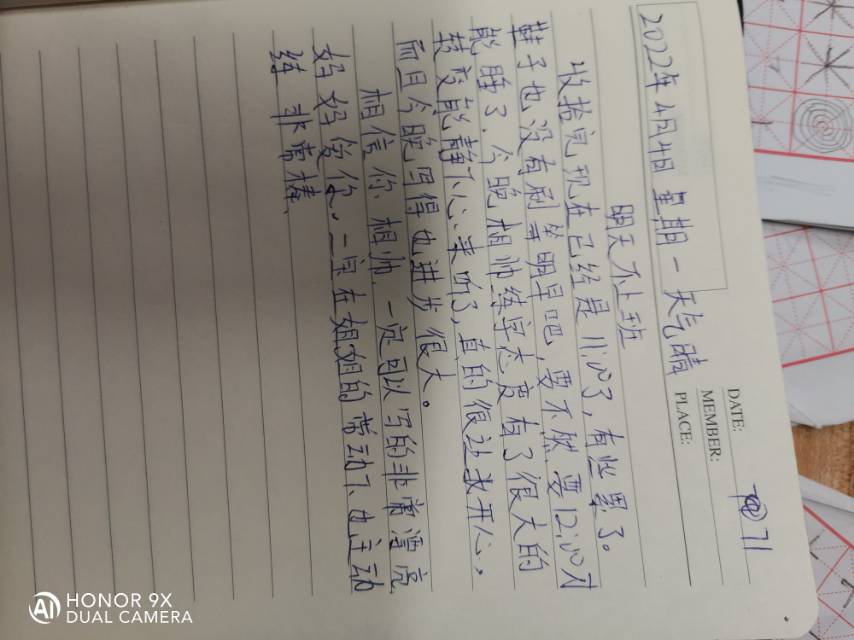 DATE:
MEMBER:
PLACE:
71
2022年4月4日 星期一 天气晴
明天不上班
收拾完现在已经是11:00了,有些累了。
鞋子也没有刷等明早吧,要不然要12:00才
能睡了,今晚相帅练字态度有了很大的
转变能静下心来听了,真的很让我开心。
而且今晚写得也进步很大。
相信你相帅,一定可以写的非常漂亮
妈妈爱你。二宝在姐姐的带动下也主动
练 非常棒、
HONOR 9X
DUAL CAMERA
AI